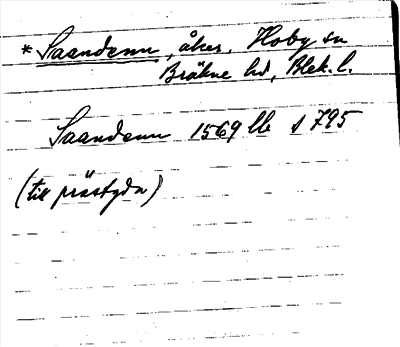 * Saandenn, åker, Hoby sn
Bräkne hd, Blek. l.
Saandenn 1569 llb s 795
(till prästgdn)